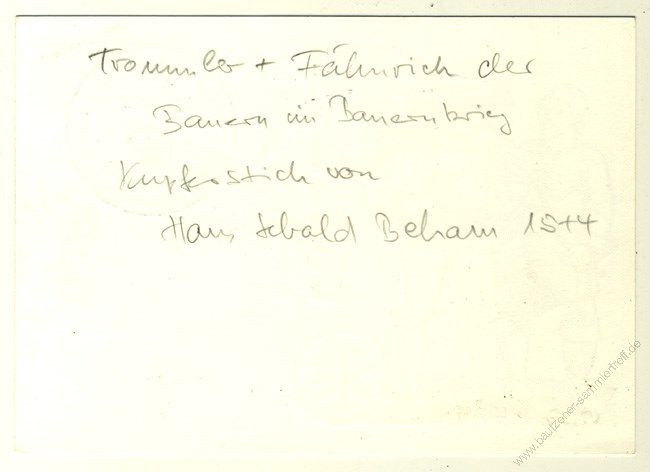 Trommler + Fähnrich der
Bauern im Bauernkrieg
Kupferstich von
Hans Sebald Beham 1544
www.bautzener-sammlertreff.de